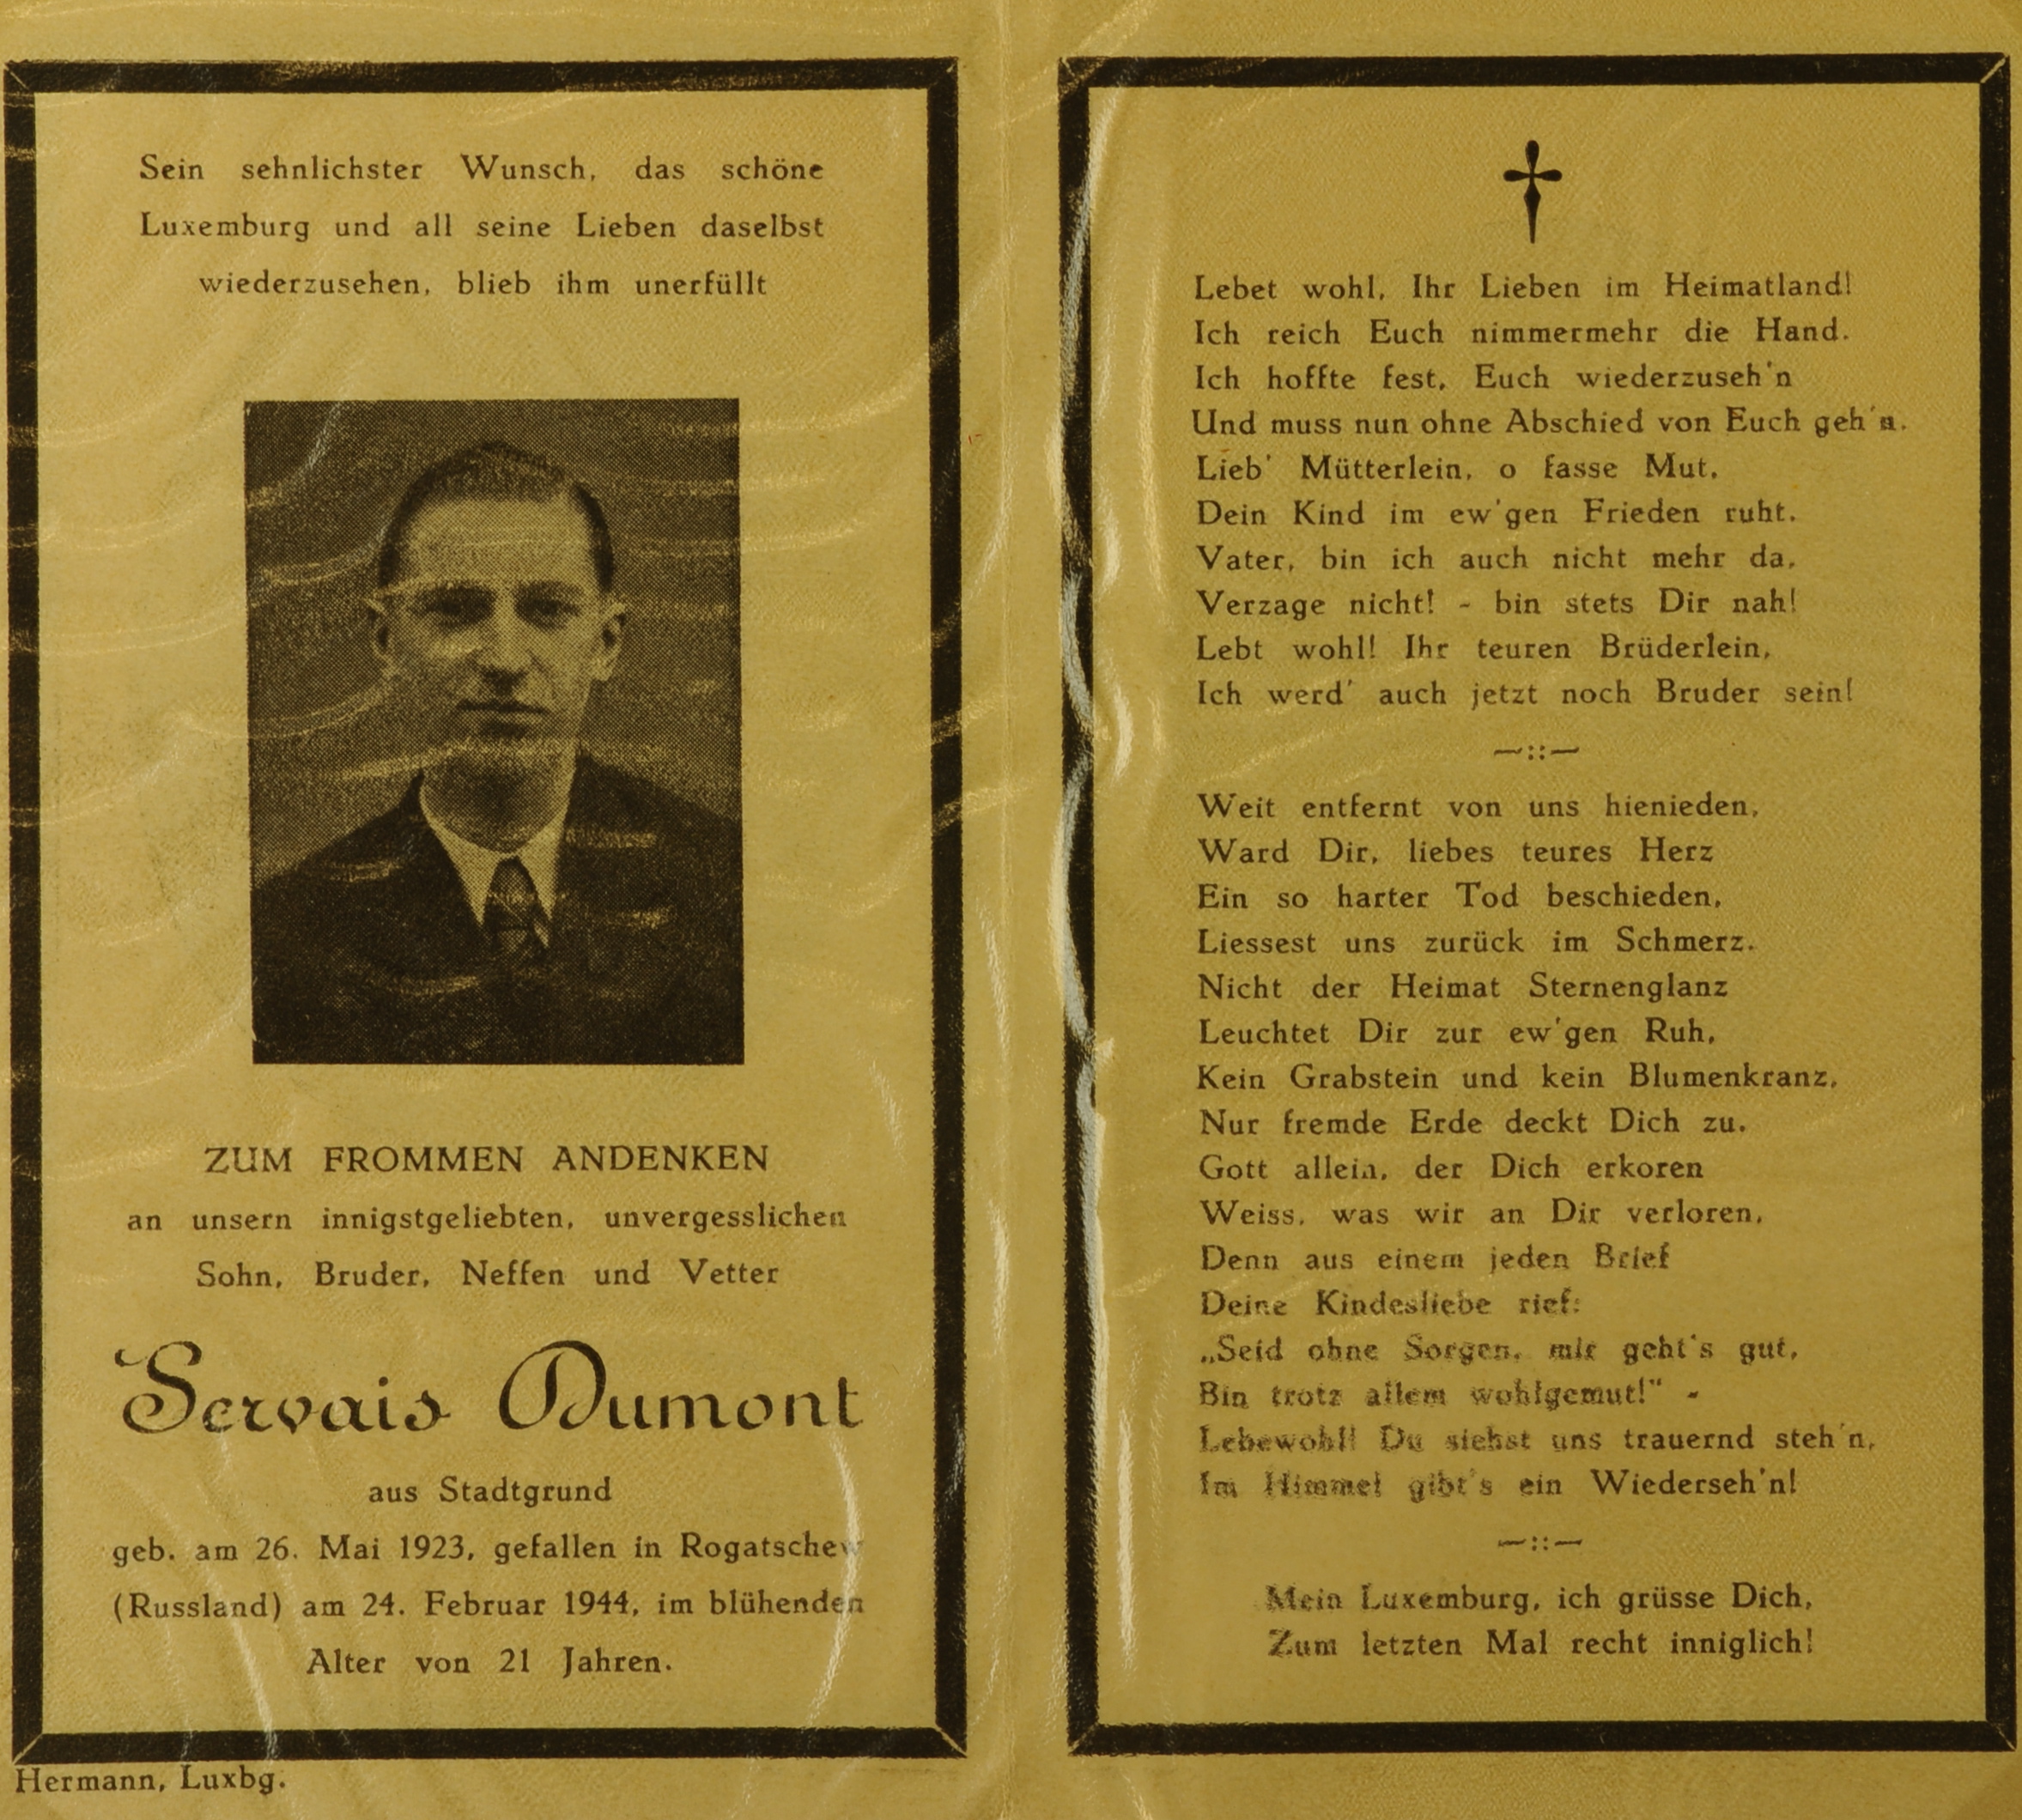 Sein sehnlichster Wunsch, das schöne
Luxemburg und all seine Lieben daselbst
wiederzusehen, blieb ihm unerfüllt
ZUM FROMMEN ANDENKEN
an unsern innigstgeliebten, unvergesslichen
Sohn, Bruder, Neffen und Vetter
Servais Dumont
aus Stadtgrund
geb. am 26. Mai 1923, gefallen in Rogatschew
(Russland) am 24. Februar 1944, im blühenden
Alter von 21 Jahren.
Hermann, Luxbg.
Lebet wohl, Ihr Lieben im Heimatland!
Ich reich Euch nimmermehr die Hand.
Ich hoffte fest, Euch wiederzuseh'n
Und muss nun ohne Abschied von Euch geh'n.
Lieb' Mütterlein, o fasse Mut,
Dein Kind im ew'gen Frieden ruht.
Vater, bin ich auch nicht mehr da,
Verzage nicht! - bin stets Dir nah!
Lebt wohl! Ihr teuren Brüderlein,
Ich werd' auch jetzt noch Bruder sein!
Weit entfernt von uns hienieden,
Ward Dir, liebes teures Herz
Ein so harter Tod beschieden,
Liessest uns zurück im Schmerz.
Nicht der Heimat Sternenglanz
Leuchtet Dir zur ew'gen Ruh,
Kein Grabstein und kein Blumenkranz,
Nur fremde Erde deckt Dich zu.
Gott allein, der Dich erkoren
Weiss, was wir an Dir verloren,
Denn aus einem jeden Brief
Deine Kindesliebe rief:
„Seid ohne Sorgen, mir geht's gut,
Bin trotz allem wohlgemut!" -
Lebewohl! Du siehst uns trauernd steh'n,
Im Himmel gibt's ein Wiederseh'n!
Mein Luxemburg, ich grüsse Dich,
Zum letzten Mal recht inniglich!